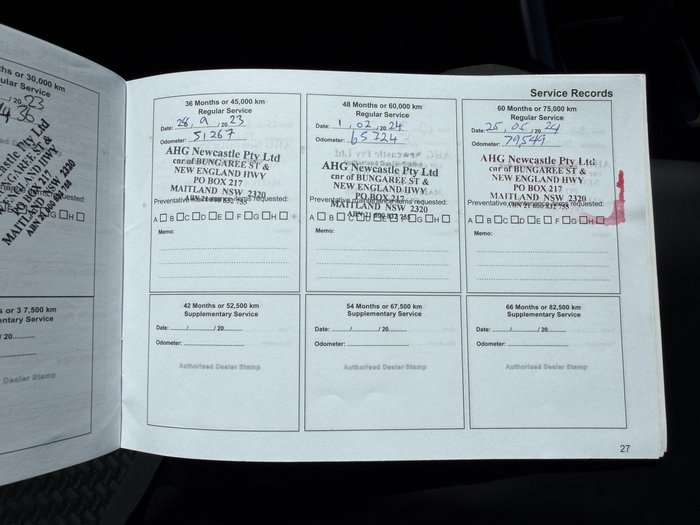 Service Records
ths or 30,000 km
ular Service
/ 20 23
36
tle Pty Ltd
REE ST &
ND HWY
PO BOX 217
MAITLAND NSW 2320
G H
s or 3 7,500 km
entary Service
/ 20
Dealer Stamp
36 Months or 45,000 km
Regular Service
Date: 28 / 9 / 20 23
Odometer: 51267
AHG Newcastle Pty Ltd
cnr of BUNGAREE ST &
NEW ENGLAND HWY
PO BOX 217
MAITLAND NSW 2320
ABN 21 600 832 755
Preventative items requested:
A B C D E F G H
Memo:
48 Months or 60,000 km
Regular Service
Date: 1 / 02 / 20 24
Odometer: 65724
AHG Newcastle Pty Ltd
cnr of BUNGAREE ST &
NEW ENGLAND HWY
PO BOX 217
MAITLAND NSW 2320
ABN 21 600 832 755
Preventative items requested:
A B C D E F G H
Memo:
60 Months or 75,000 km
Regular Service
Date: 25 / 05 / 20 24
Odometer: 79549
AHG Newcastle Pty Ltd
cnr of BUNGAREE ST &
NEW ENGLAND HWY
PO BOX 217
MAITLAND NSW 2320
ABN 21 600 832 755
Preventative items requested:
A B C D E F G H
Memo:
42 Months or 52,500 km
Supplementary Service
Date: / / 20
Odometer:
Authorised Dealer Stamp
54 Months or 67,500 km
Supplementary Service
Date: / / 20
Odometer:
Authorised Dealer Stamp
66 Months or 82,500 km
Supplementary Service
Date: / / 20
Odometer:
Authorised Dealer Stamp
27